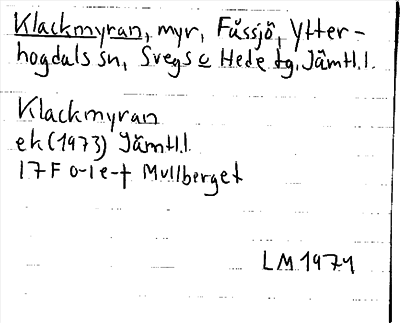 Klackmyran, myr, Fåssjö, Ytter-
hogdals sn, Svegs o Hede tg, Jämtl.l.
Klackmyran
ek (1973) Jämtl.l.
17F o-1 e-f Mullberget
LM 1974